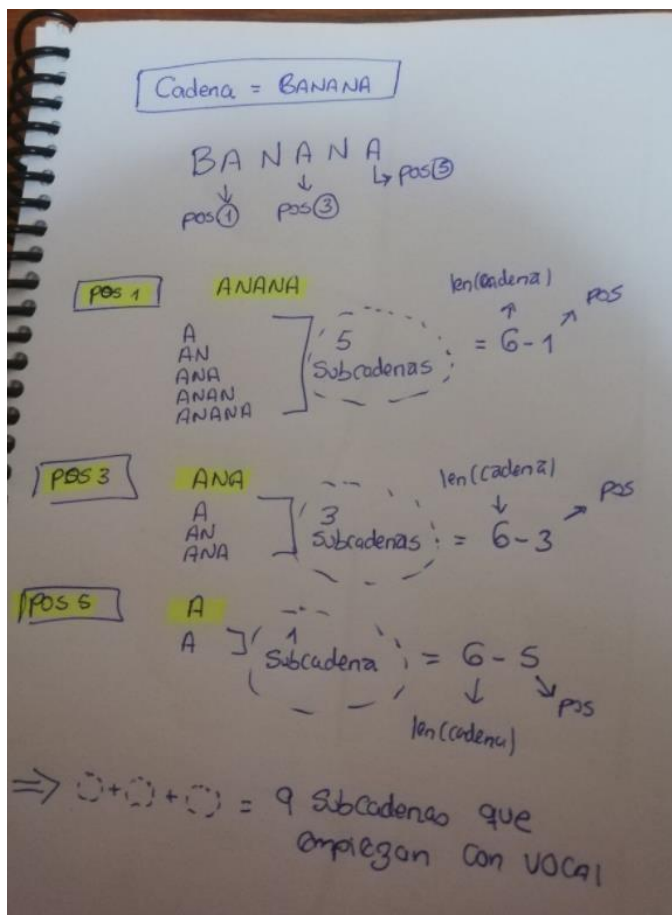 Cadena = BANANA
BANANA
pos① pos③ pos⑤
POS 1 ANANA
A
AN
ANA
ANAN
ANANA
5
Subcadenas
= 6-1
len(cadena)
pos
POS 3 ANA
A
AN
ANA
3
Subcadenas
= 6-3
len(cadena)
pos
POS 5 A
A
1
Subcadena
= 6-5
pos
len(cadena)
⇒ + + = 9 Subcadenas que
empiezan con VOCAl